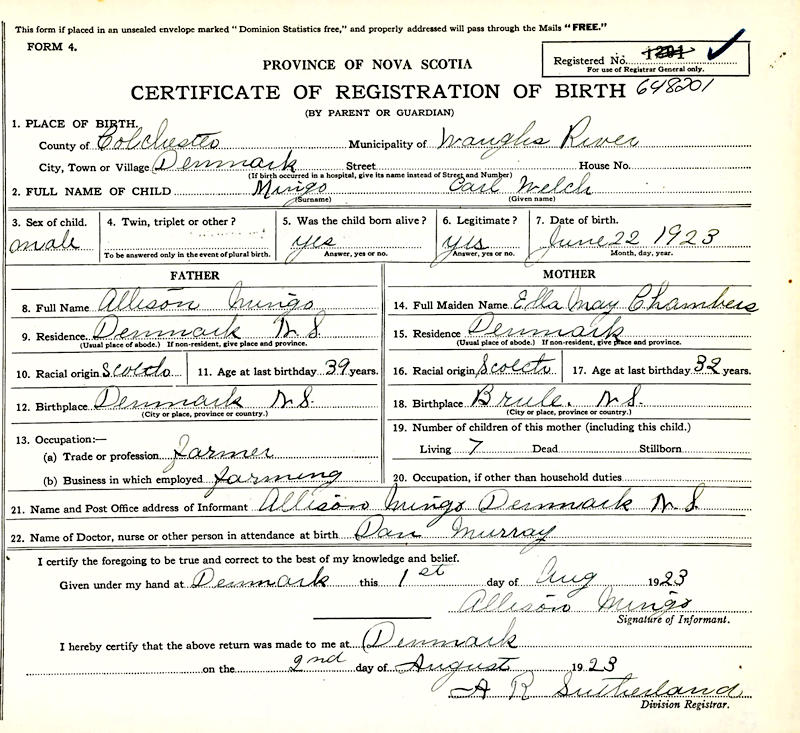 This form if placed in an unsealed envelope marked "Dominion Statistics free," and properly addressed will pass through the Mails "FREE."
FORM 4.
Registered No. 1201
For use of Registrar General only.
PROVINCE OF NOVA SCOTIA
CERTIFICATE OF REGISTRATION OF BIRTH 648201
(BY PARENT OR GUARDIAN)
1. PLACE OF BIRTH.
County of Colchester Municipality of Waughs River
City, Town or Village Denmark Street House No.
(If birth occurred in a hospital, give its name instead of Street and Number)
2. FULL NAME OF CHILD Mingo Carl Welch
(Surname) (Given name)
3. Sex of child. 4. Twin, triplet or other? 5. Was the child born alive? 6. Legitimate? 7. Date of birth.
male yes yes June 22 1923
To be answered only in the event of plural birth. Answer, yes or no. Answer, yes or no. Month, day, year.
FATHER MOTHER
8. Full Name Allison Mingo 14. Full Maiden Name Ella May Chambers
9. Residence Denmark N.S. 15. Residence Denmark
(Usual place of abode.) If non-resident, give place and province. (Usual place of abode.) If non-resident, give place and province.
10. Racial origin Scotch 11. Age at last birthday 39 years. 16. Racial origin Scotch 17. Age at last birthday 32 years.
12. Birthplace Denmark N.S. 18. Birthplace Brule. N.S.
(City or place, province or country.) (City or place, province or country.)
13. Occupation:— 19. Number of children of this mother (including this child.)
(a) Trade or profession farmer Living 7 Dead Stillborn
(b) Business in which employed farming 20. Occupation, if other than household duties
21. Name and Post Office address of Informant Allison Mingo Denmark N.S
22. Name of Doctor, nurse or other person in attendance at birth Dan Murray
I certify the foregoing to be true and correct to the best of my knowledge and belief.
Given under my hand at Denmark this 1st day of Aug 1923
Allison Mingo
Signature of Informant.
I hereby certify that the above return was made to me at Denmark
on the 2nd day of August 1923
A R Sutherland
Division Registrar.